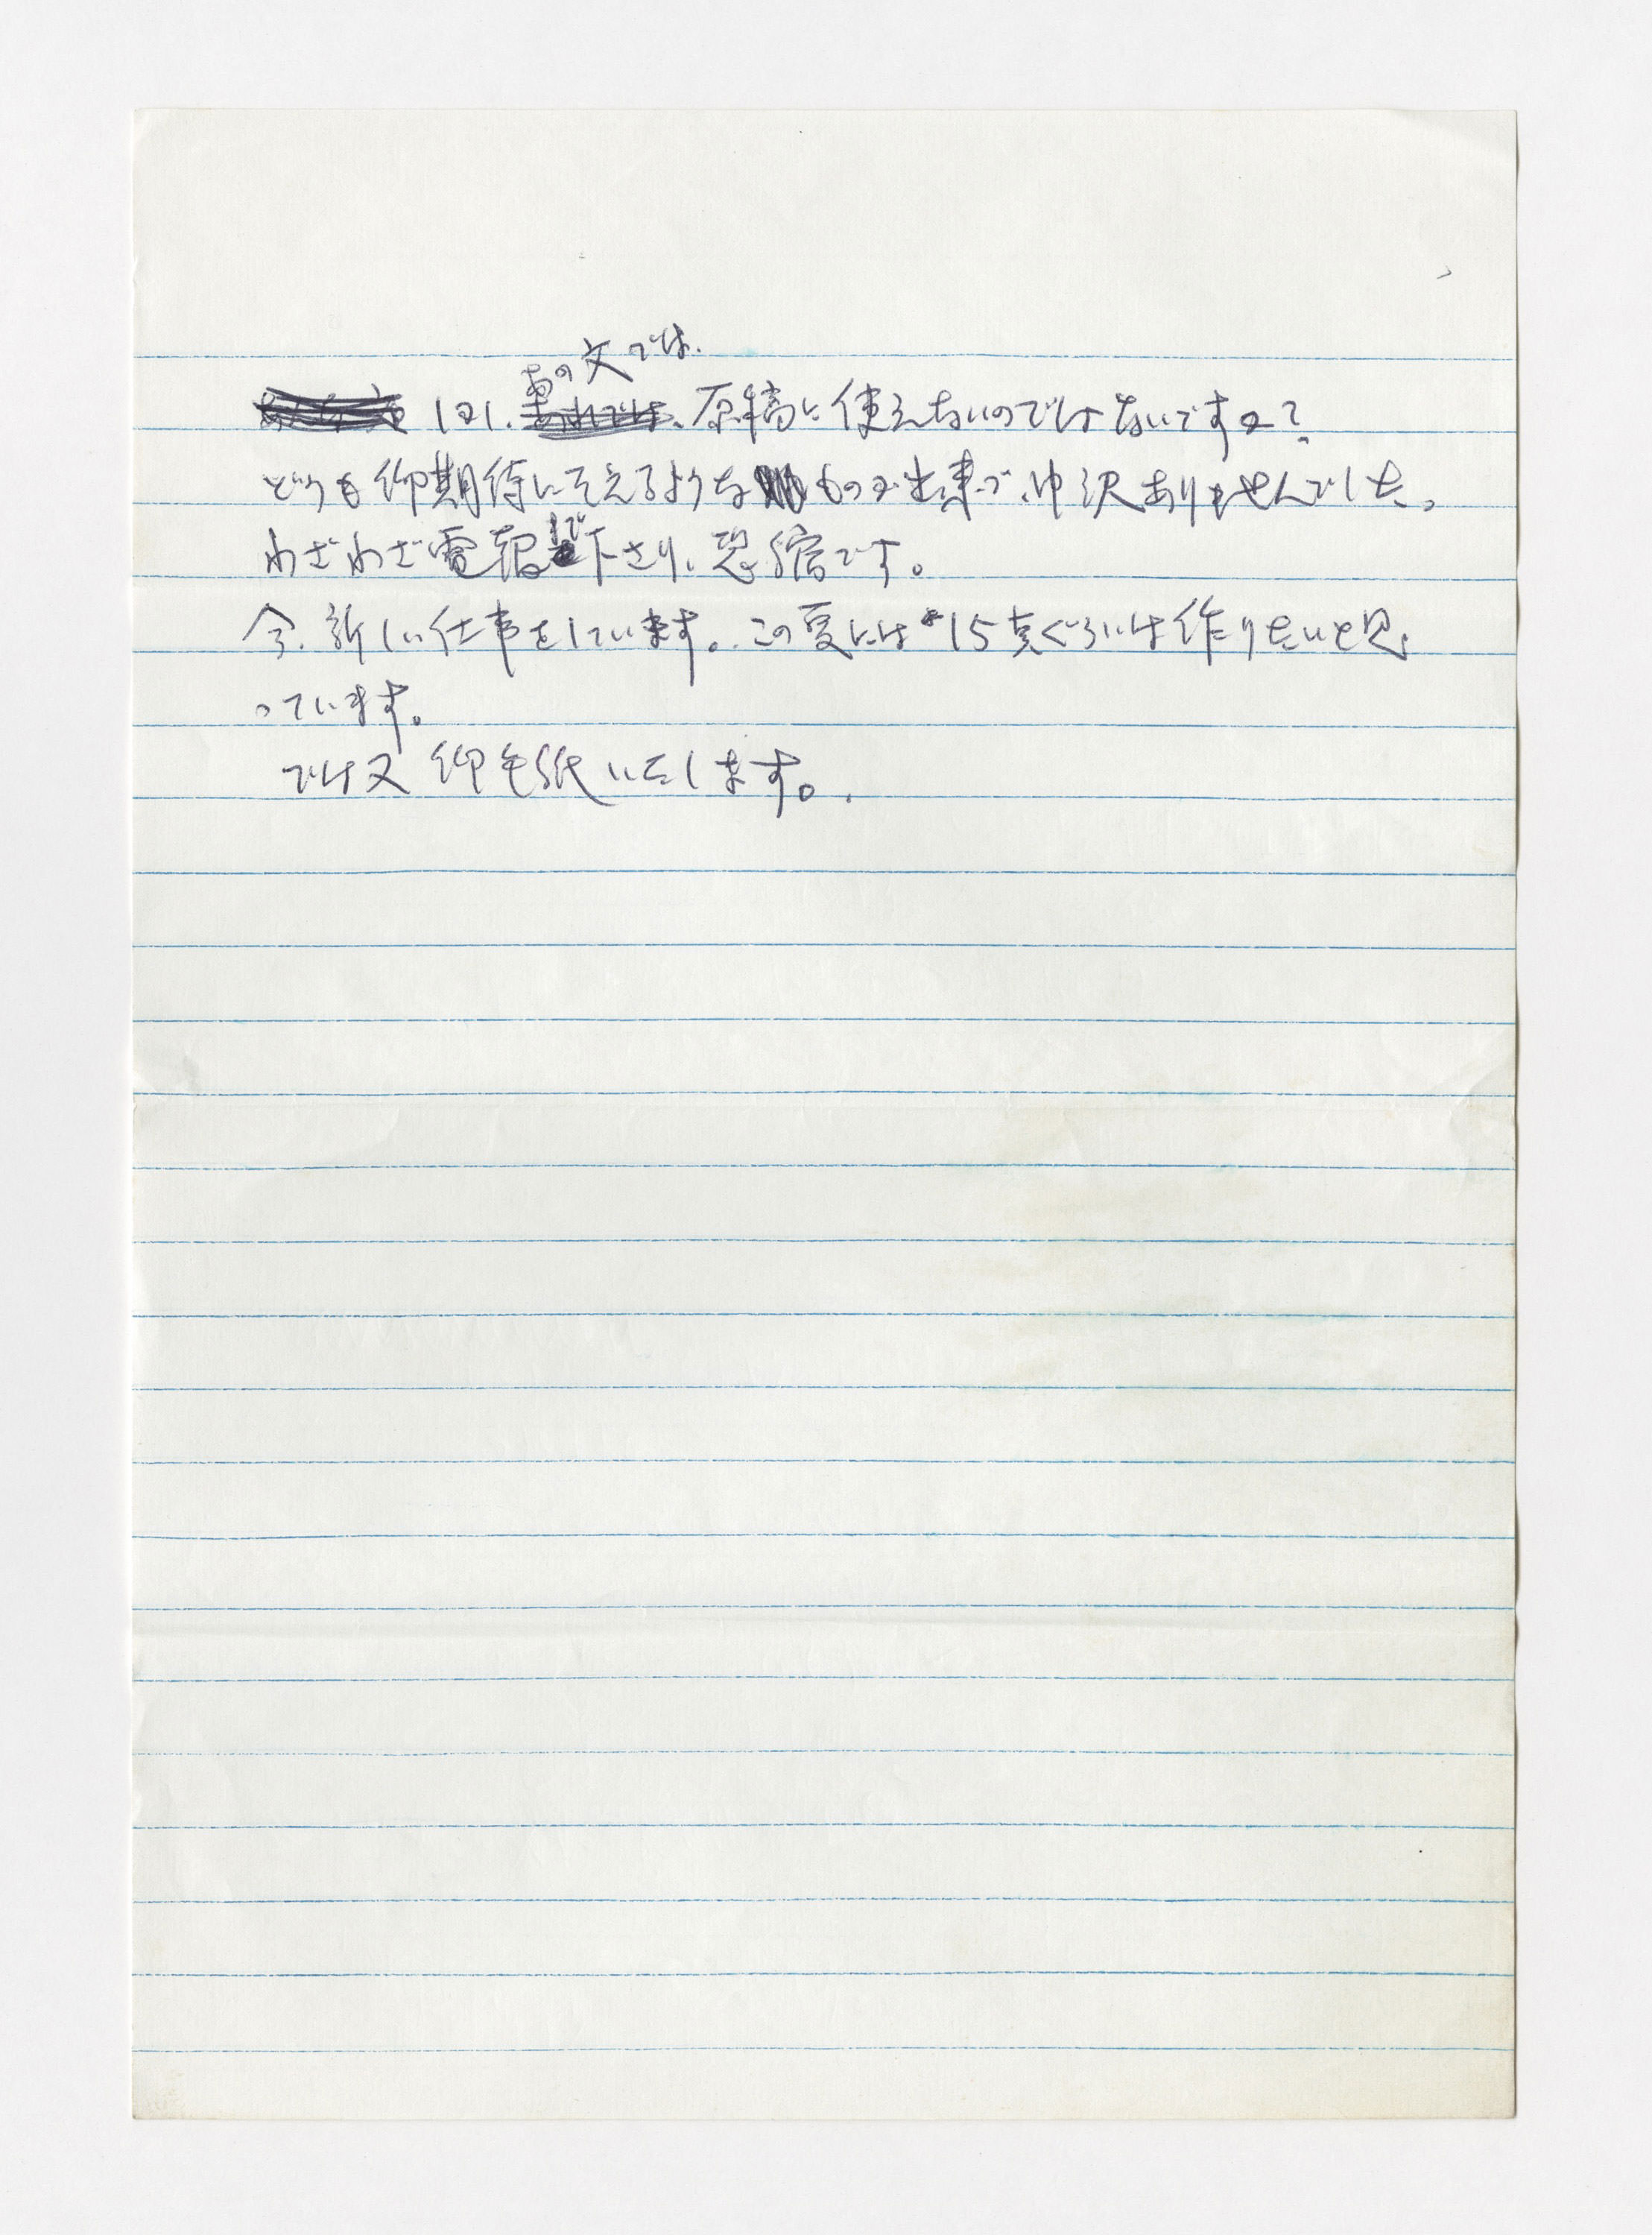 あの文では、
しかし、原稿に使えないのではないですか?
どうも御期待にそえるようなものが出来ず、申訳ありませんでした。
わざわざ電報まで下さり、恐縮です。
今、新しい仕事をしています。この夏には15点ぐらいは作りたいと思
っています。
では又御手紙いたします。